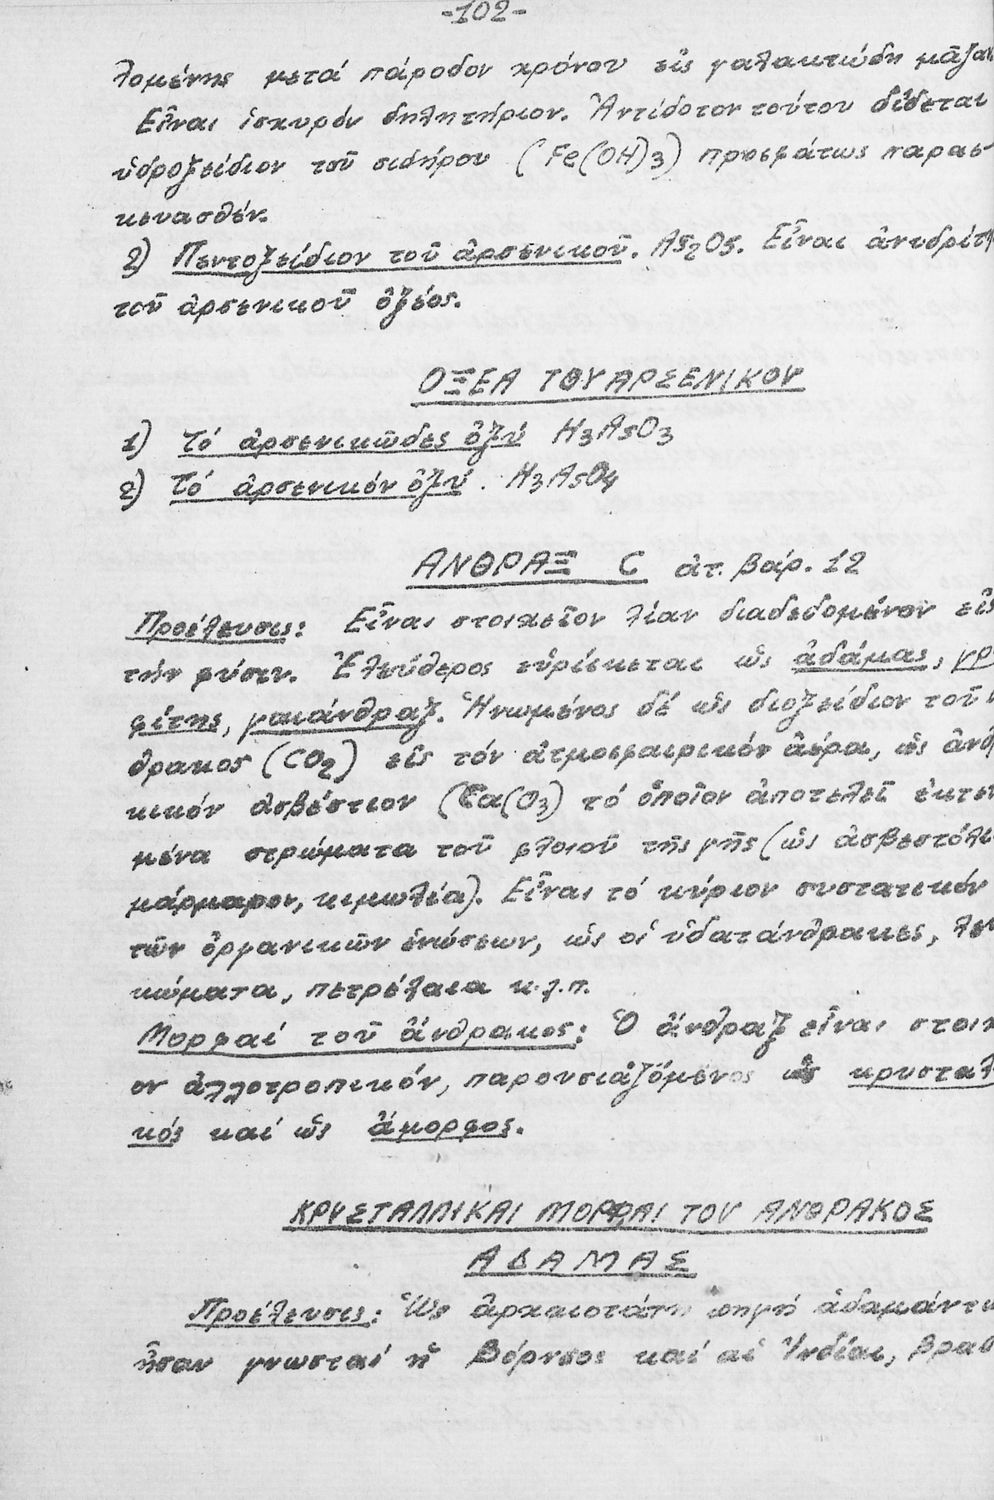 -102-
λομένης μετά πάροδον χρόνου εἰς γαλακτώδη μᾶζαν
Εἶναι ἰσχυρόν δηλητήριον. Ἀντίδοτον τούτου δίδεται
ὑδροξείδιον τοῦ σιδήρου (Fe(OH)3) προσφάτως παρασ-
κευασθέν.
2) Πεντοξείδιον τοῦ ἀρσενικοῦ. As2O5. Εἶναι ἀνυδρίτη
τοῦ ἀρσενικοῦ ὀξέος.
ΟΞΕΑ ΤΟΥ ΑΡΣΕΝΙΚΟΥ
1) Τό ἀρσενικῶδες ὀξύ H3AsO3
2) Τό ἀρσενικόν ὀξύ. H3AsO4
ΑΝΘΡΑΞ C ἀτ. βάρ. 12
Προέλευσις: Εἶναι στοιχεῖον λίαν διαδεδομένον εἰς
τήν φύσιν. Ἐλεύθερος εὑρίσκεται ὡς ἀδάμας, γρ
φίτης, γαιάνθραξ. Ἡνωμένος δέ ὡς διοξείδιον τοῦ
θρακος (CO2) εἰς τόν ἀτμοσφαιρικόν ἀέρα, ὡς ἀνθ
κικόν ἀσβέστιον (CaCO3) τό ὁποῖον ἀποτελεῖ ἐκτε
μένα στρώματα τοῦ φλοιοῦ τῆς γῆς (ὡς ἀσβεστόλι
μάρμαρον, κιμωλία). Εἶναι τό κύριον συστατικόν
τῶν ὀργανικῶν ἑνώσεων, ὡς οἱ ὑδατάνθρακες, λευ
κώματα, πετρέλαια κ.λ.π.
Μορφαί τοῦ ἄνθρακος: Ὁ ἄνθραξ εἶναι στοιχ
ον ἀλλοτροπικόν, παρουσιαζόμενος ὡς κρυσταλ
κός καί ὡς ἄμορφος.
ΚΡΥΣΤΑΛΛΙΚΑΙ ΜΟΡΦΑΙ ΤΟΥ ΑΝΘΡΑΚΟΣ
ΑΔΑΜΑΣ
Προέλευσις: Ὡς ἀρχαιοτάτη πηγή ἀδαμάντω
ἦσαν γνωσταί ἡ Βόρνεος καί αἱ Ἰνδίαι, βραδ